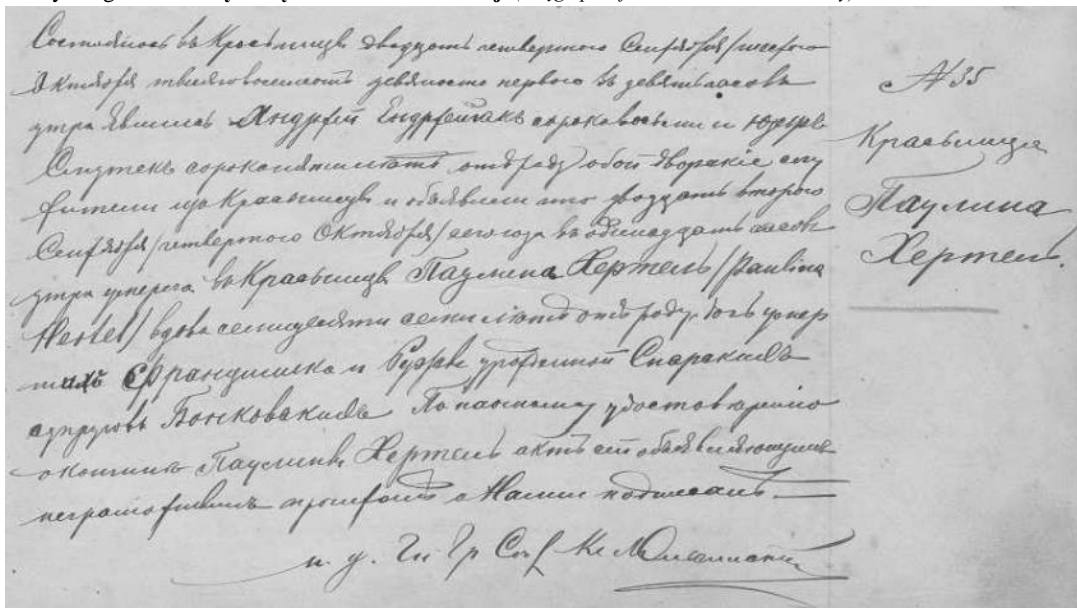 Состоялось въ Красьницѣ двадцать четвертого Сентября/шестого
Октября тысяча восемьсотъ девяносто первого въ девять часовъ
утра явились Андрей сорока восьми и
сорока пяти лѣтъ отъ роду обой
жители изъ Красьницы и объявили что двадцать второго
Сентября/четвертого Октября/сего года въ одинадцать часовъ
утра умерла въ Красьницѣ Паулина Хертель/Paulina
Hertel/вдова семидесяти семи лѣтъ отъ роду дочь умер
шихъ Францишка и урожденной
супруговъ Бонковскихъ По настоящему удостовѣренію
о кончинѣ Паулины Хертель актъ сей объявляющимъ
неграмотнымъ прочитанъ Нами подписанъ.
и. д. Гр Сос Кс
№ 35
Красьница
Паулина
Хертель.